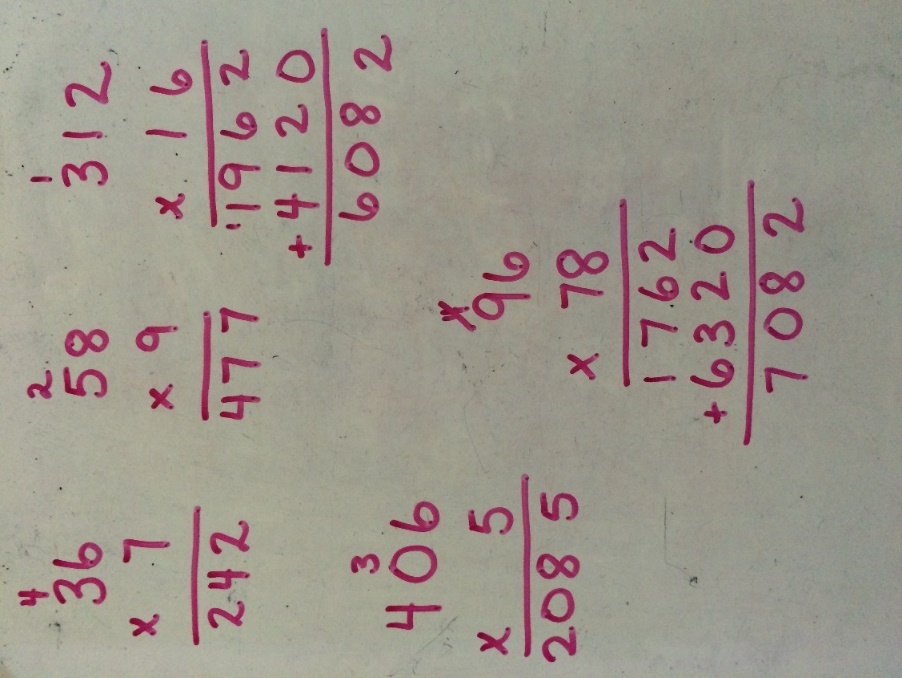 4
36
x 7
242
2
58
x 9
477
1
312
x 16
1962
+ 4120
6082
3
406
x 5
2085
96
x 78
1762
+ 6320
7082